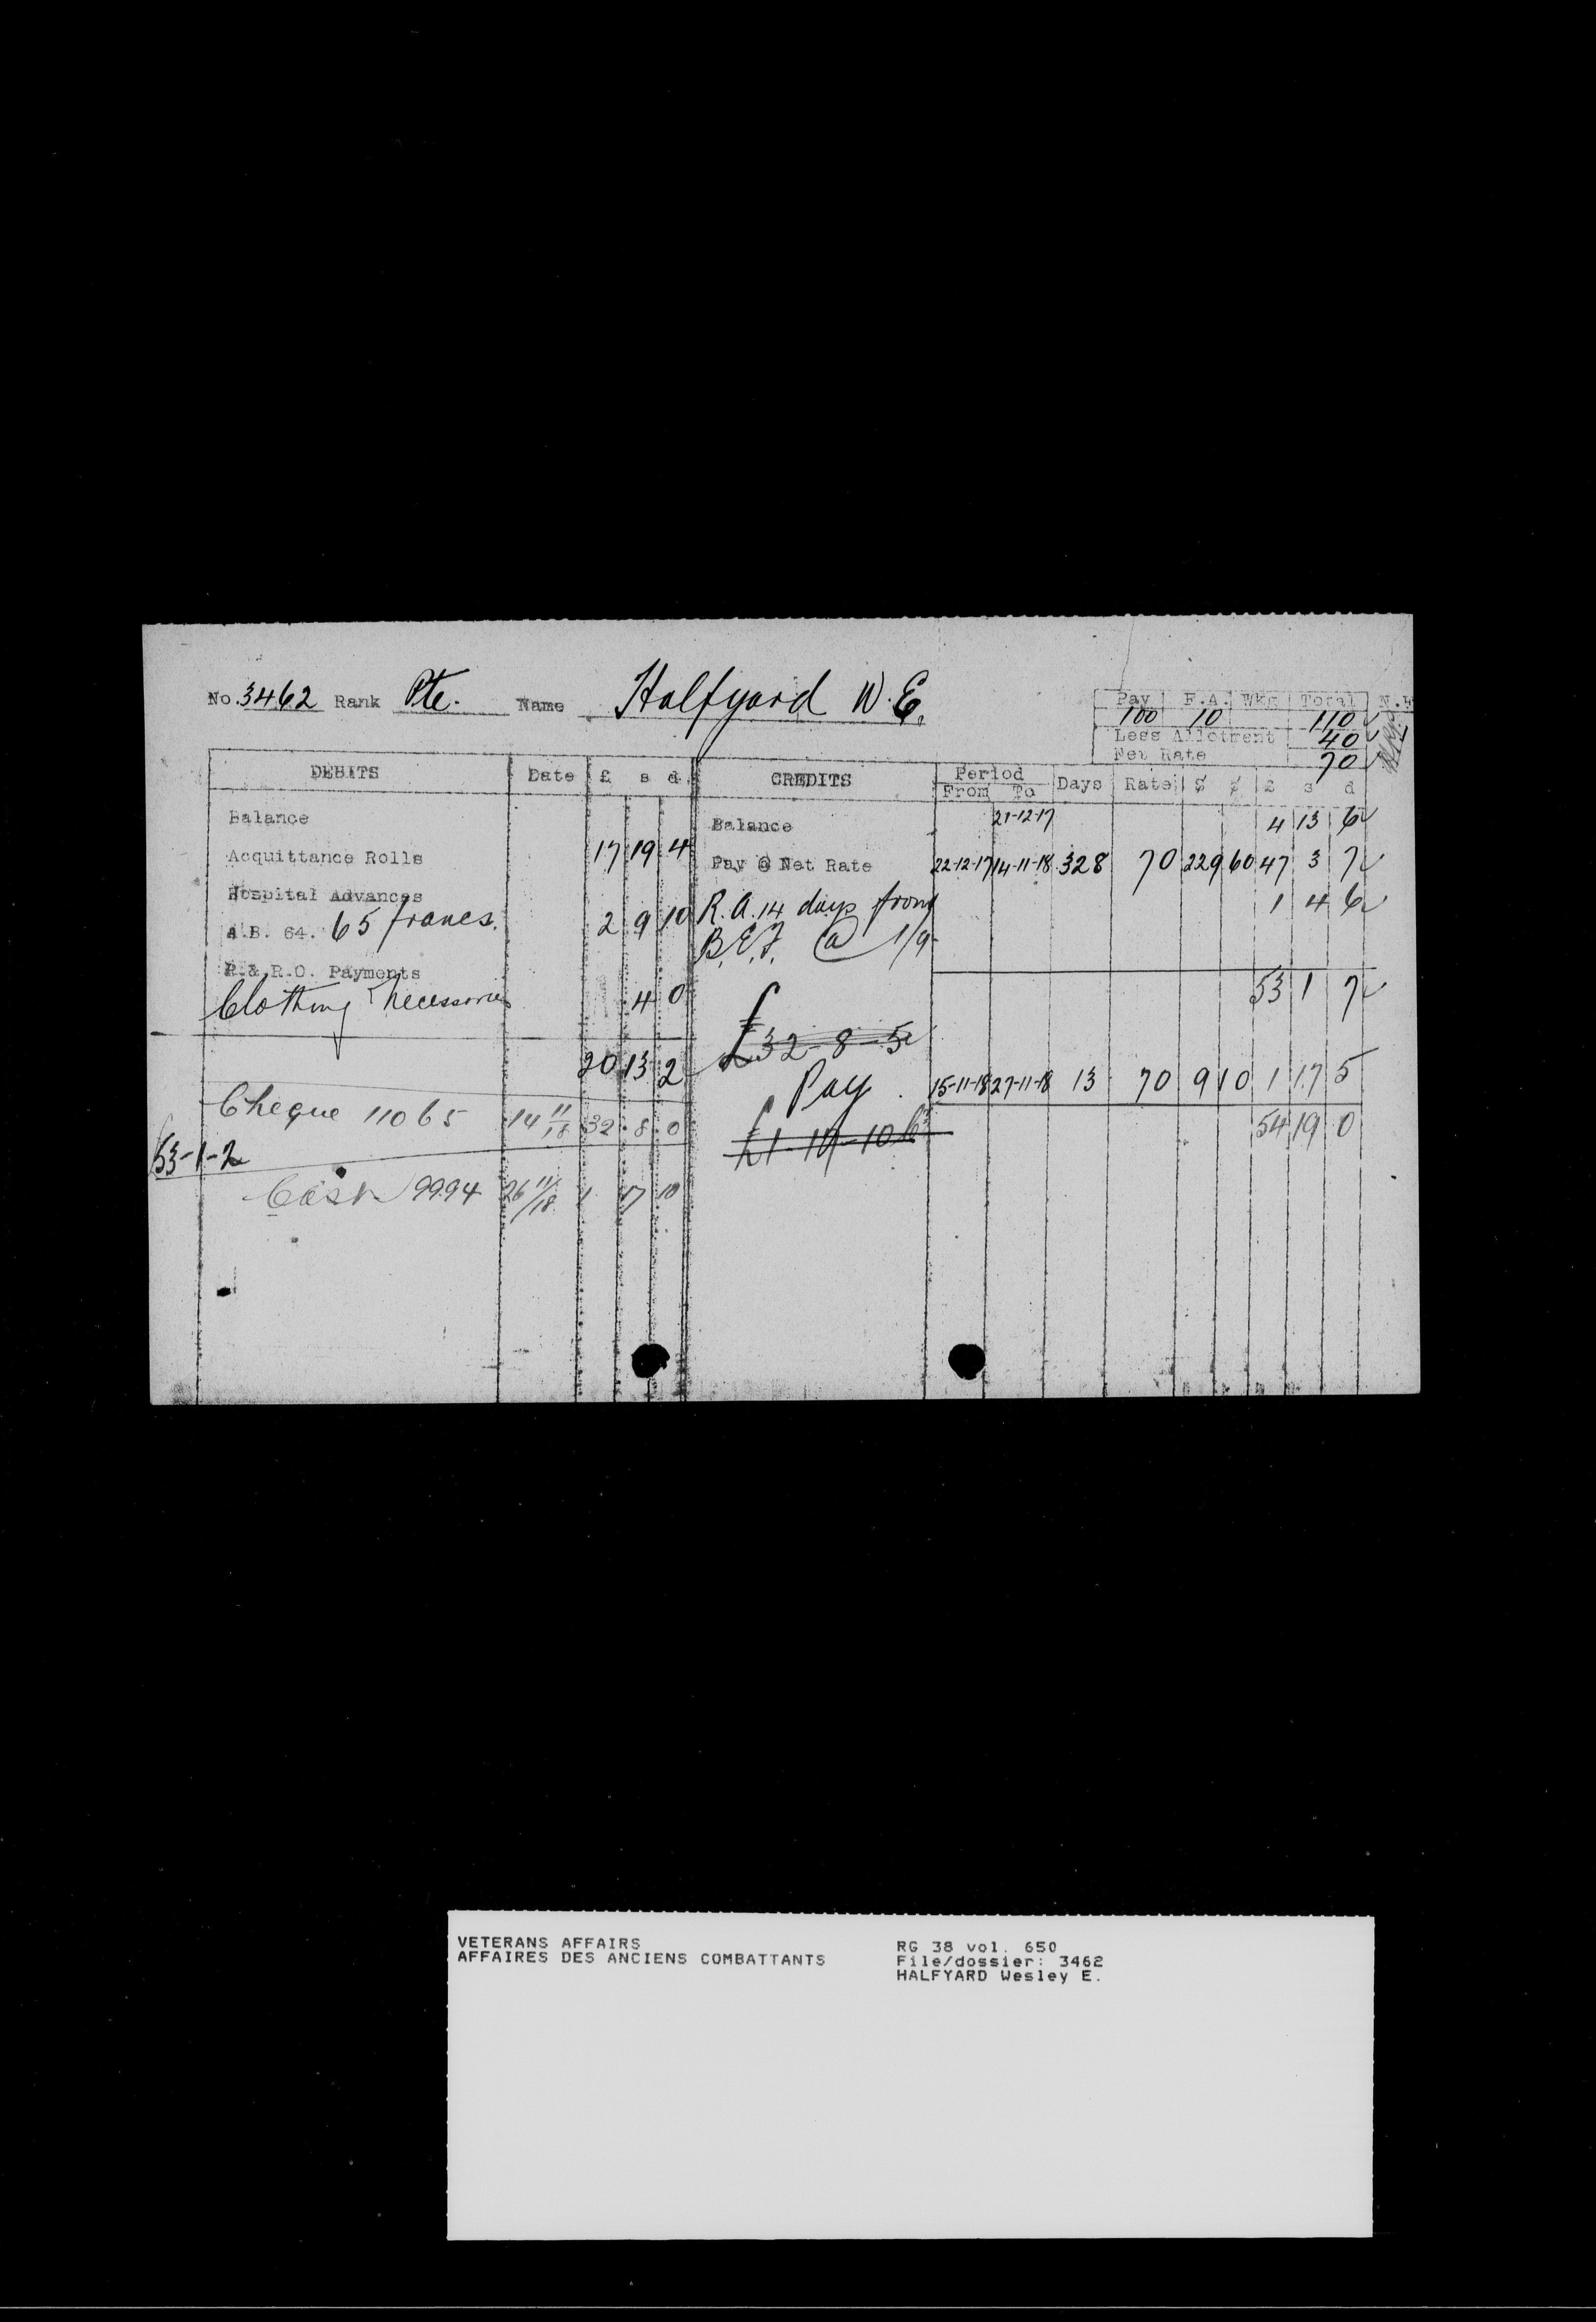 No. 3462 Rank Pte. Name Halfyard W. E.
Pay F.A. Wkg Total N.
100 10 110
Less Allotment 40
Net Rate 70
DEBITS Date £ s d CREDITS Period From To Days Rate $ ¢ £ s d
Balance Balance 21-12-17 4 13 6
Acquittance Rolls 17 19 4 Pay @ Net Rate 22-12-17 14-11-18 328 70 229 60 47 3 7
Hospital Advances
A.B. 64. 65 francs. 2 9 10 R.A. 14 days from 1 4 6
B.E.F. @ 1/9
P.& R.O. Payments
Clothing & necessories 4 0 53 1 7
£
20 13 2 £32-8-5
Pay. 15-11-18 27-11-18 13 70 9 10 1 17 5
Cheque 11065 14 11/18 32 8 0 54 19 0
53-1-2 £1-17-10
Cash 9994 26 11/18 1 17 10
VETERANS AFFAIRS
AFFAIRES DES ANCIENS COMBATTANTS
RG 38 vol. 650
File/dossier: 3462
HALFYARD Wesley E.